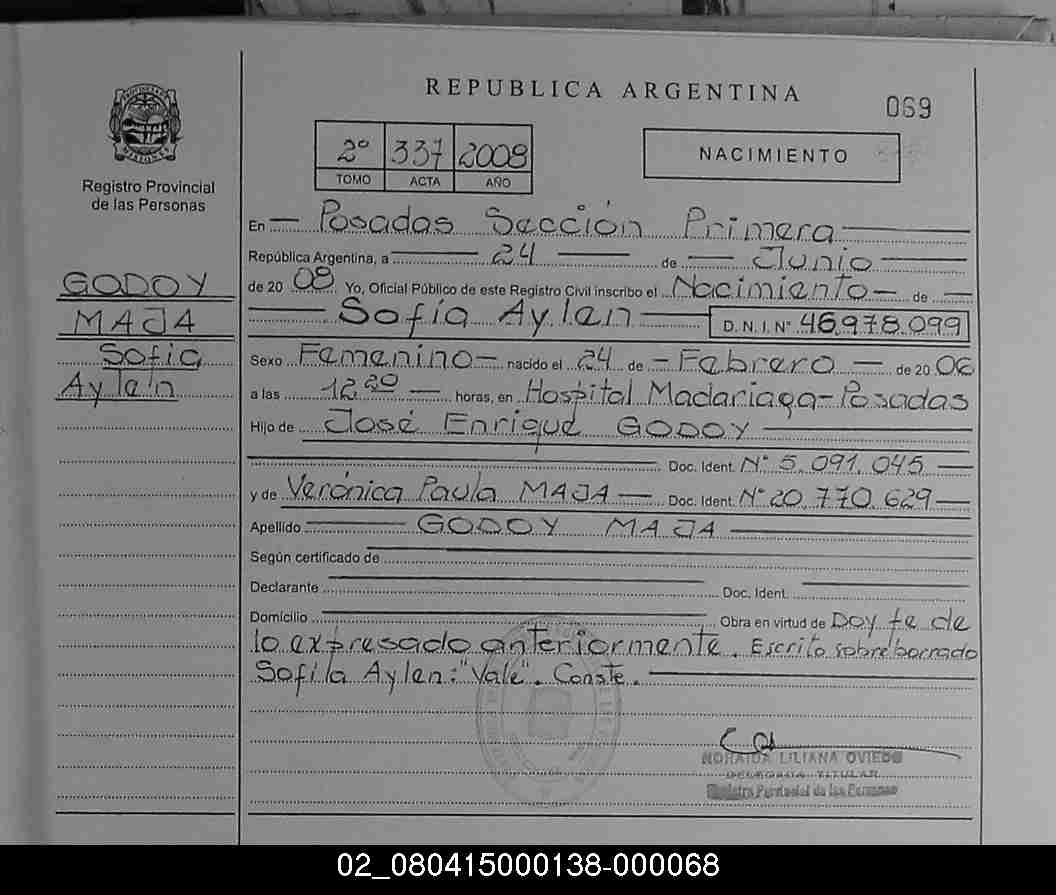 REPUBLICA ARGENTINA
069
2º 337 2008
TOMO ACTA AÑO
NACIMIENTO
Registro Provincial
de las Personas
GODOY
MAJA
Sofía
Aylen
En Posadas Sección Primera
República Argentina, a 24 de Junio
de 20 08 Yo, Oficial Público de este Registro Civil inscribo el Nacimiento de
Sofía Aylen D.N.I.Nº 46.978.099
Sexo Femenino nacido el 24 de Febrero de 20 06
a las 12 20 horas, en Hospital Madariaga-Posadas
Hijo de José Enrique GODOY
Doc. Ident. Nº 5.091.045
y de Verónica Paula MAJA Doc. Ident. Nº 20.770.629
Apellido GODOY MAJA
Según certificado de
Declarante Doc. Ident.
Domicilio Obra en virtud de Doy fe de
lo expresado anteriormente. Escrito sobreborrado
Sofía Aylen: "Vale". Conste.
LILIANA OVIEDO
DELEGADA TITULAR
Registro Provincial de las Personas
02_080415000138-000068